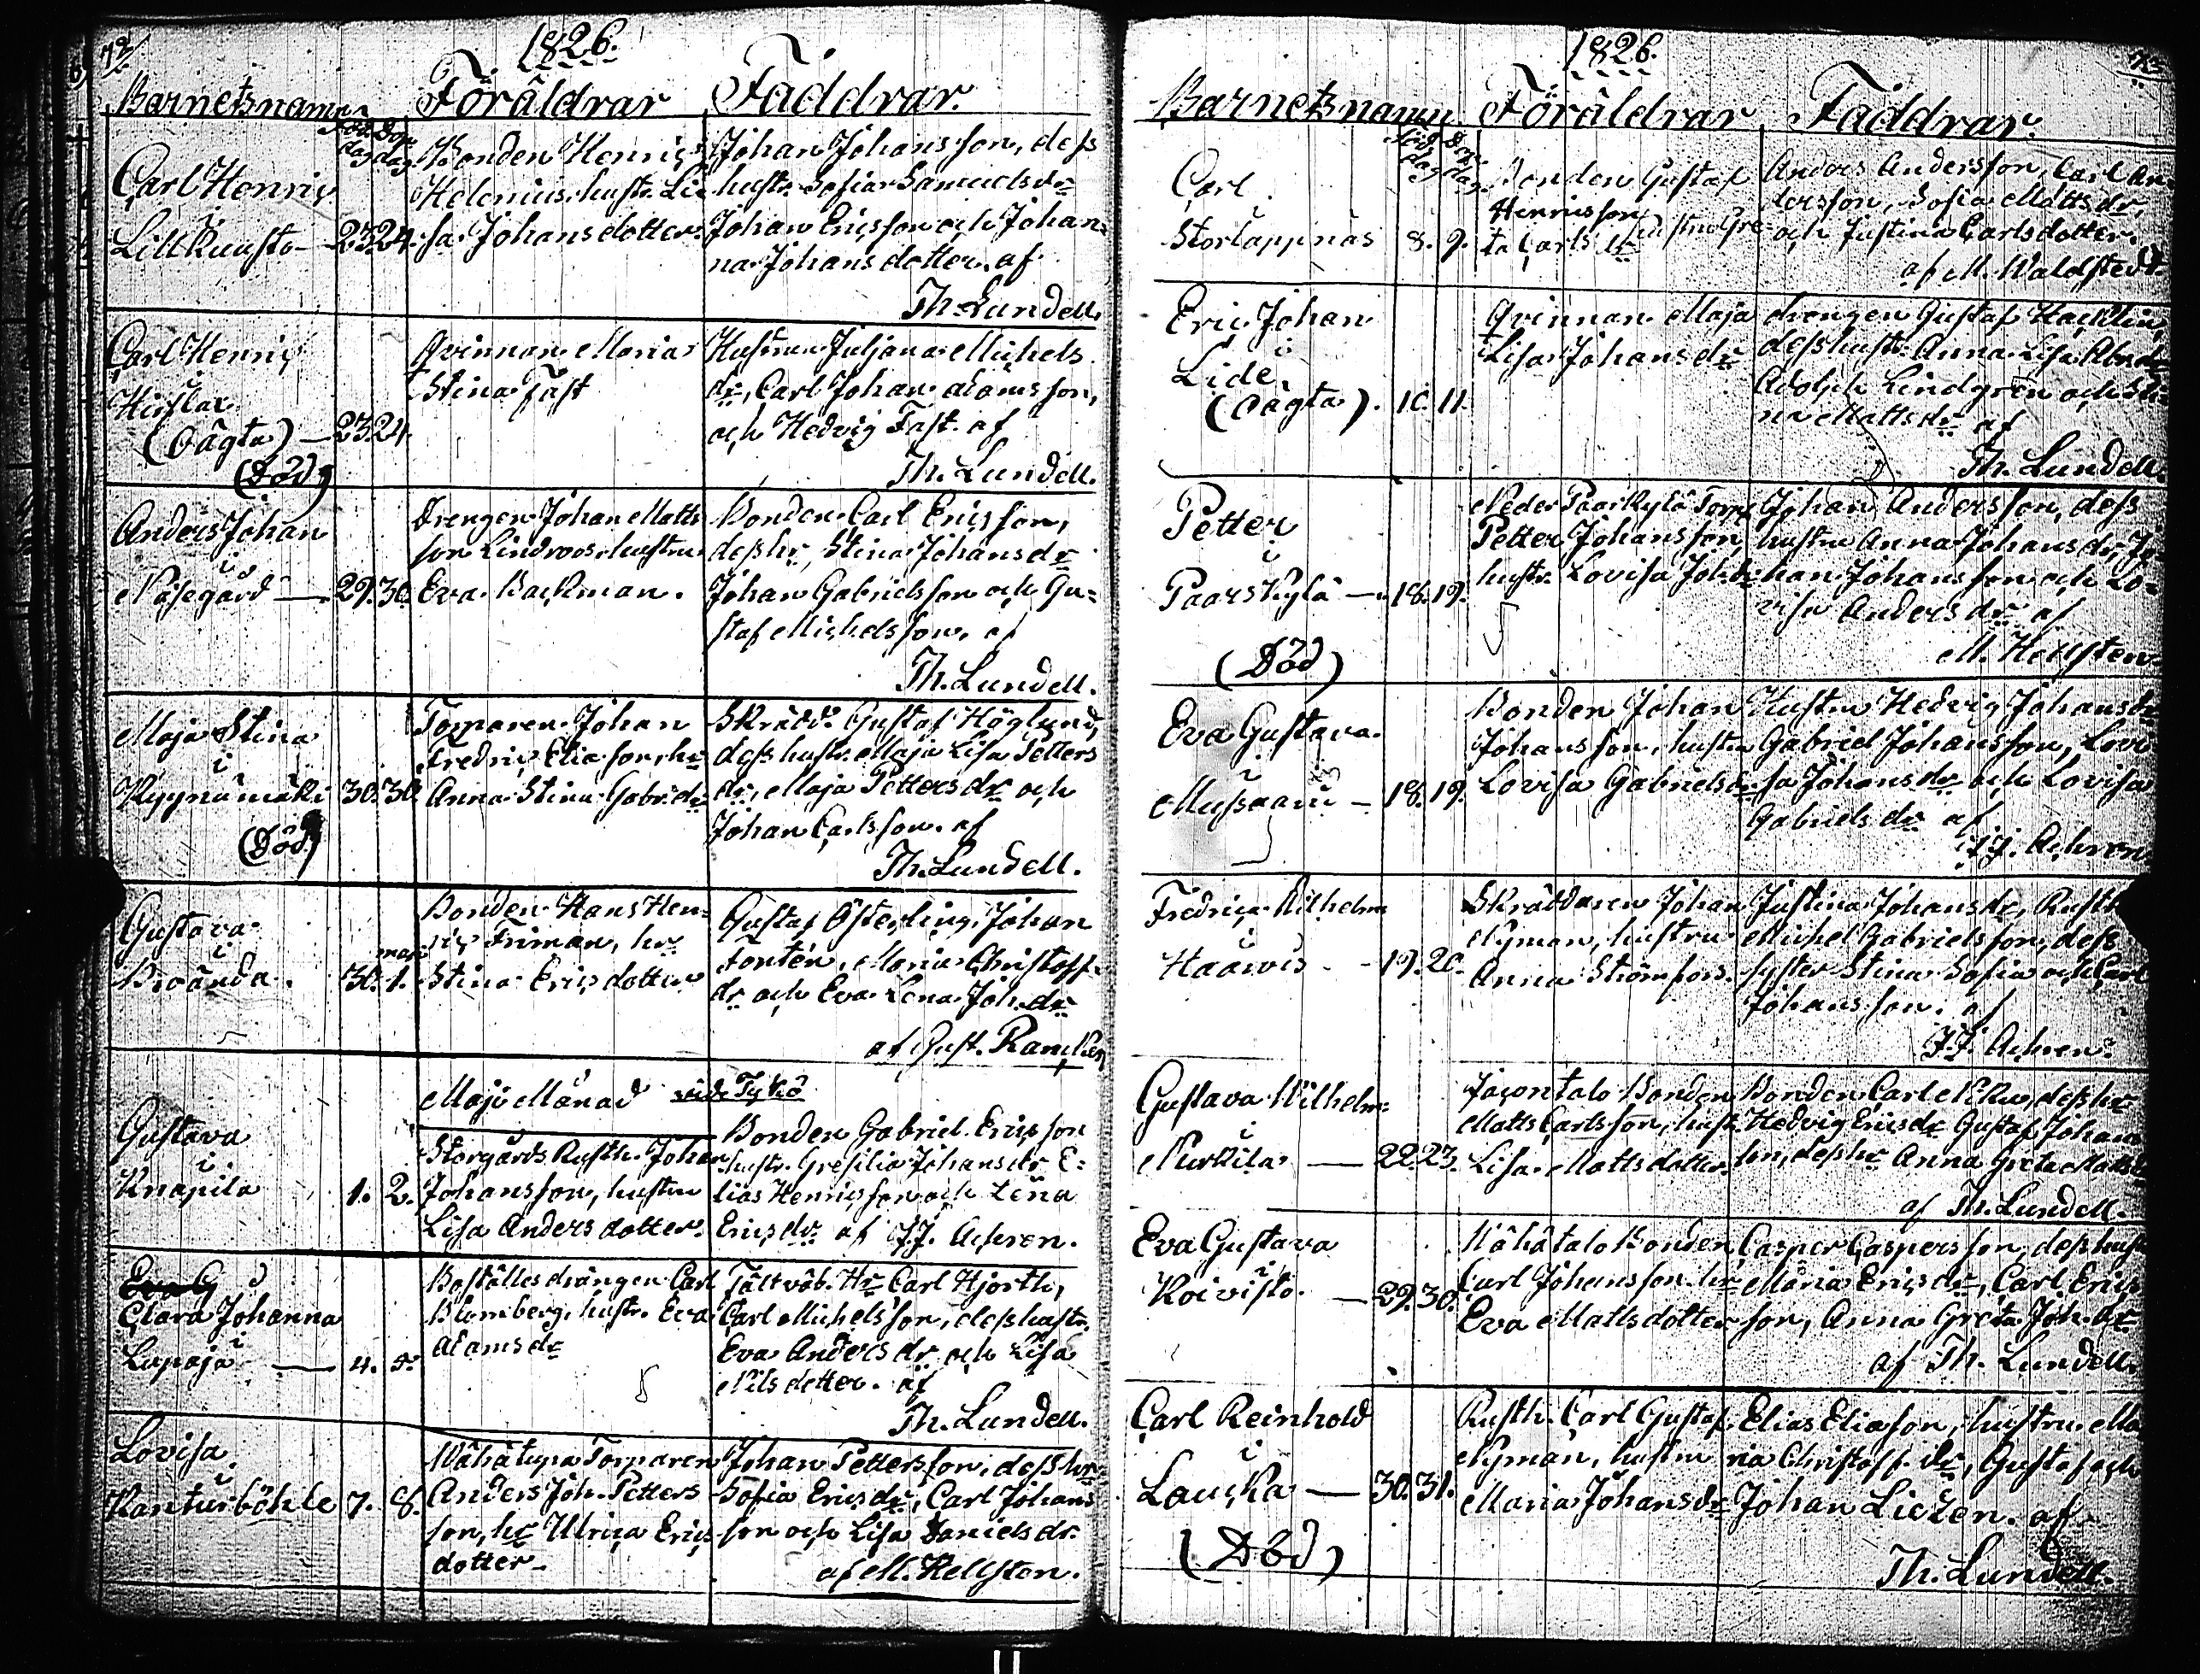 1826.
Barnets namn
Född dag
Döp dag
Föräldrar
Faddrar.
Carl Henric
i
Littkuusto — 23. 24.
Bonden Henric
Helenius, hustr. Li-
sa Johansdotter.
Johan Johansson, dess
hustr. Sofia Samuelsdr
Johan Ericsson och Johan-
na Johansdotter. af
Th. Lundell.
Carl Henric
(Oägta) — 23. 24.
(Död)
Qvinnan Maria
Stina Fast
Hustrun Juljana Michels
dr, Carl Johan Adamsson,
och Hedvig Fast. af
Th. Lundell.
Anders Johan
i
Näsegård — 29. 30.
Drengen Johan Matts
son Lindroos, hustru
Eva Backman.
Bonden Carl Ericsson,
dess hr, Stina Johansdr
Johan Gabrielsson och Gu-
staf Michelsson. af
Th. Lundell.
Maja Stina
i
Kyynämäki 30. 30.
(Död)
Torparen Johan
Fredric Eliasson, hr
Anna Stina Gabr. dr
Skrädd. Gustaf Höglund,
dess hustr. Maja Lisa Petters
dr, Maja Pettersdr och
Johan Carlsson. af
Th. Lundell.
Gustava
i
Broända. 30. maji 1.
Bonden Hans Hen-
ric Friman, hr
Stina Ericsdotter
Gustaf Österling, Johan
Fontén, Maria Christoff.
dr och Eva Lena Joh. dr
af Gust. Rancken
Maji Månad vide Tykö
Gustava
i
Knapila 1. 2.
Storgårds Rusth. Johan
Johansson, hustru
Lisa Andersdotter.
Bonden Gabriel Ericsson
hustr. Gresilia Johansdr E-
lias Henricsson och Lena
Ericsdr. af J.J. Achren.
Clara Johanna
i
Lupaja — 4. 5.
Boställesdrängen Carl
Blomberg, hustr. Eva
Adamsdr
Fältväb. Hr Carl Hjorth,
Carl Michelsson, dess hustr.
Eva Andersdr och Lisa
Nilsdotter. af
Th. Lundell.
Lovisa
i
Kanturböhle 7. 8.
Wähätupa Torparen
Anders Joh. Petters
son, hr Ulrica Erics
dotter.
Johan Pettersson, dess hr
Sofia Ericsdr, Carl Johans
son och Lisa Danielsdr.
af M. Hellsten.
1826.
Barnets namn.
Född dag
Döp dag
Föräldrar
Faddrar.
Carl
i
Storlappnäs 8. 9.
Bonden Gustaf
Henricsson, hustru Gre-
ta Carlsdr
Anders Andersson, Carl An-
dersson, Sofia Mattsdr,
och Justina Carlsdotter.
af M. Waldstedt.
Eric Johan
i
Lide,
(Oägta). 10. 11.
Qvinnan Maja
Lisa Johansdr
drengen Gustaf Hacklin,
dess hustr. Anna Lisa
Adolph Lindgren och Sti-
na Mattsdr af
Th. Lundell.
Petter
i
Paarskylä — 18. 19.
(Död)
Neder Paarkylä Torp.
Petter Johansson
hustr. Lovisa Joh. dr
Johan Andersson, dess
hustru Anna Johansdr, Jo-
han Johansson och Lo-
visa Andersdr af
M. Hellsten.
Eva Gustava
i
18. 19.
Bonden Johan
Johansson, hustru
Lovisa Gabrielsdr
Hustru Hedvig Johansdr
Gabriel Johansson, Lovi
sa Johansdr och Lovisa
Gabrielsdr af
J.J. Achren.
Fredrica Wilhelm
Haawis 19. 20.
Skräddaren Johan
Nyman, hustru
Anna Strömfors.
Justina Johansdr, Rusth.
Michel Gabrielsson, dess
syster Stina Sofia och Carl
Johansson. af
J.J. Achren.
Gustava Wilhelm:
i
Nurkila — 22. 23.
Bonden
Matts Carlsson, hust.
Lisa Mattsdotter.
Bonden Carl, dess hr
Hedvig Ericsdr Gustaf Johans
son, dess hr Anna Greta Mattsdr
af Th. Lundell.
Eva Gustava
i
Koivisto. — 29. 30.
Wähätalo Bonden
Carl Johansson hr
Eva Mattsdotter
Casper Caspersson, dess hustr
Maria Ericsdr, Carl Erics
son, Anna Greta Joh. dr
af Th. Lundell.
Carl Reinhold
i
Laucka — 30. 31.
(Död)
Rusth. Carl Gustaf
Nyman, hustru
Maria Johansdr
Elias Eliasson, hustru Ma
ria Christoff. dr, Gustaf och
Johan Lidzen. af
Th. Lundell.